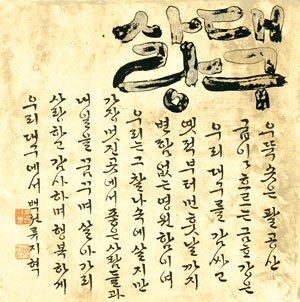 대구
사랑
우뚝 솟은 팔공산
굽이쳐 흐르는 금호강은
우리 대구를 감싸고
옛적부터 먼 훗날까지
변함없는 영원함이여
우리는 그 찰나 속에 살지만
가장 멋진 곳에서 좋은 사람들과
내일을 꿈꾸며 살아가리
사랑하고 감사하며 행복하게
우리 대구에서 백천 류지혁